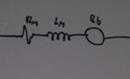 Rm Lm Rb